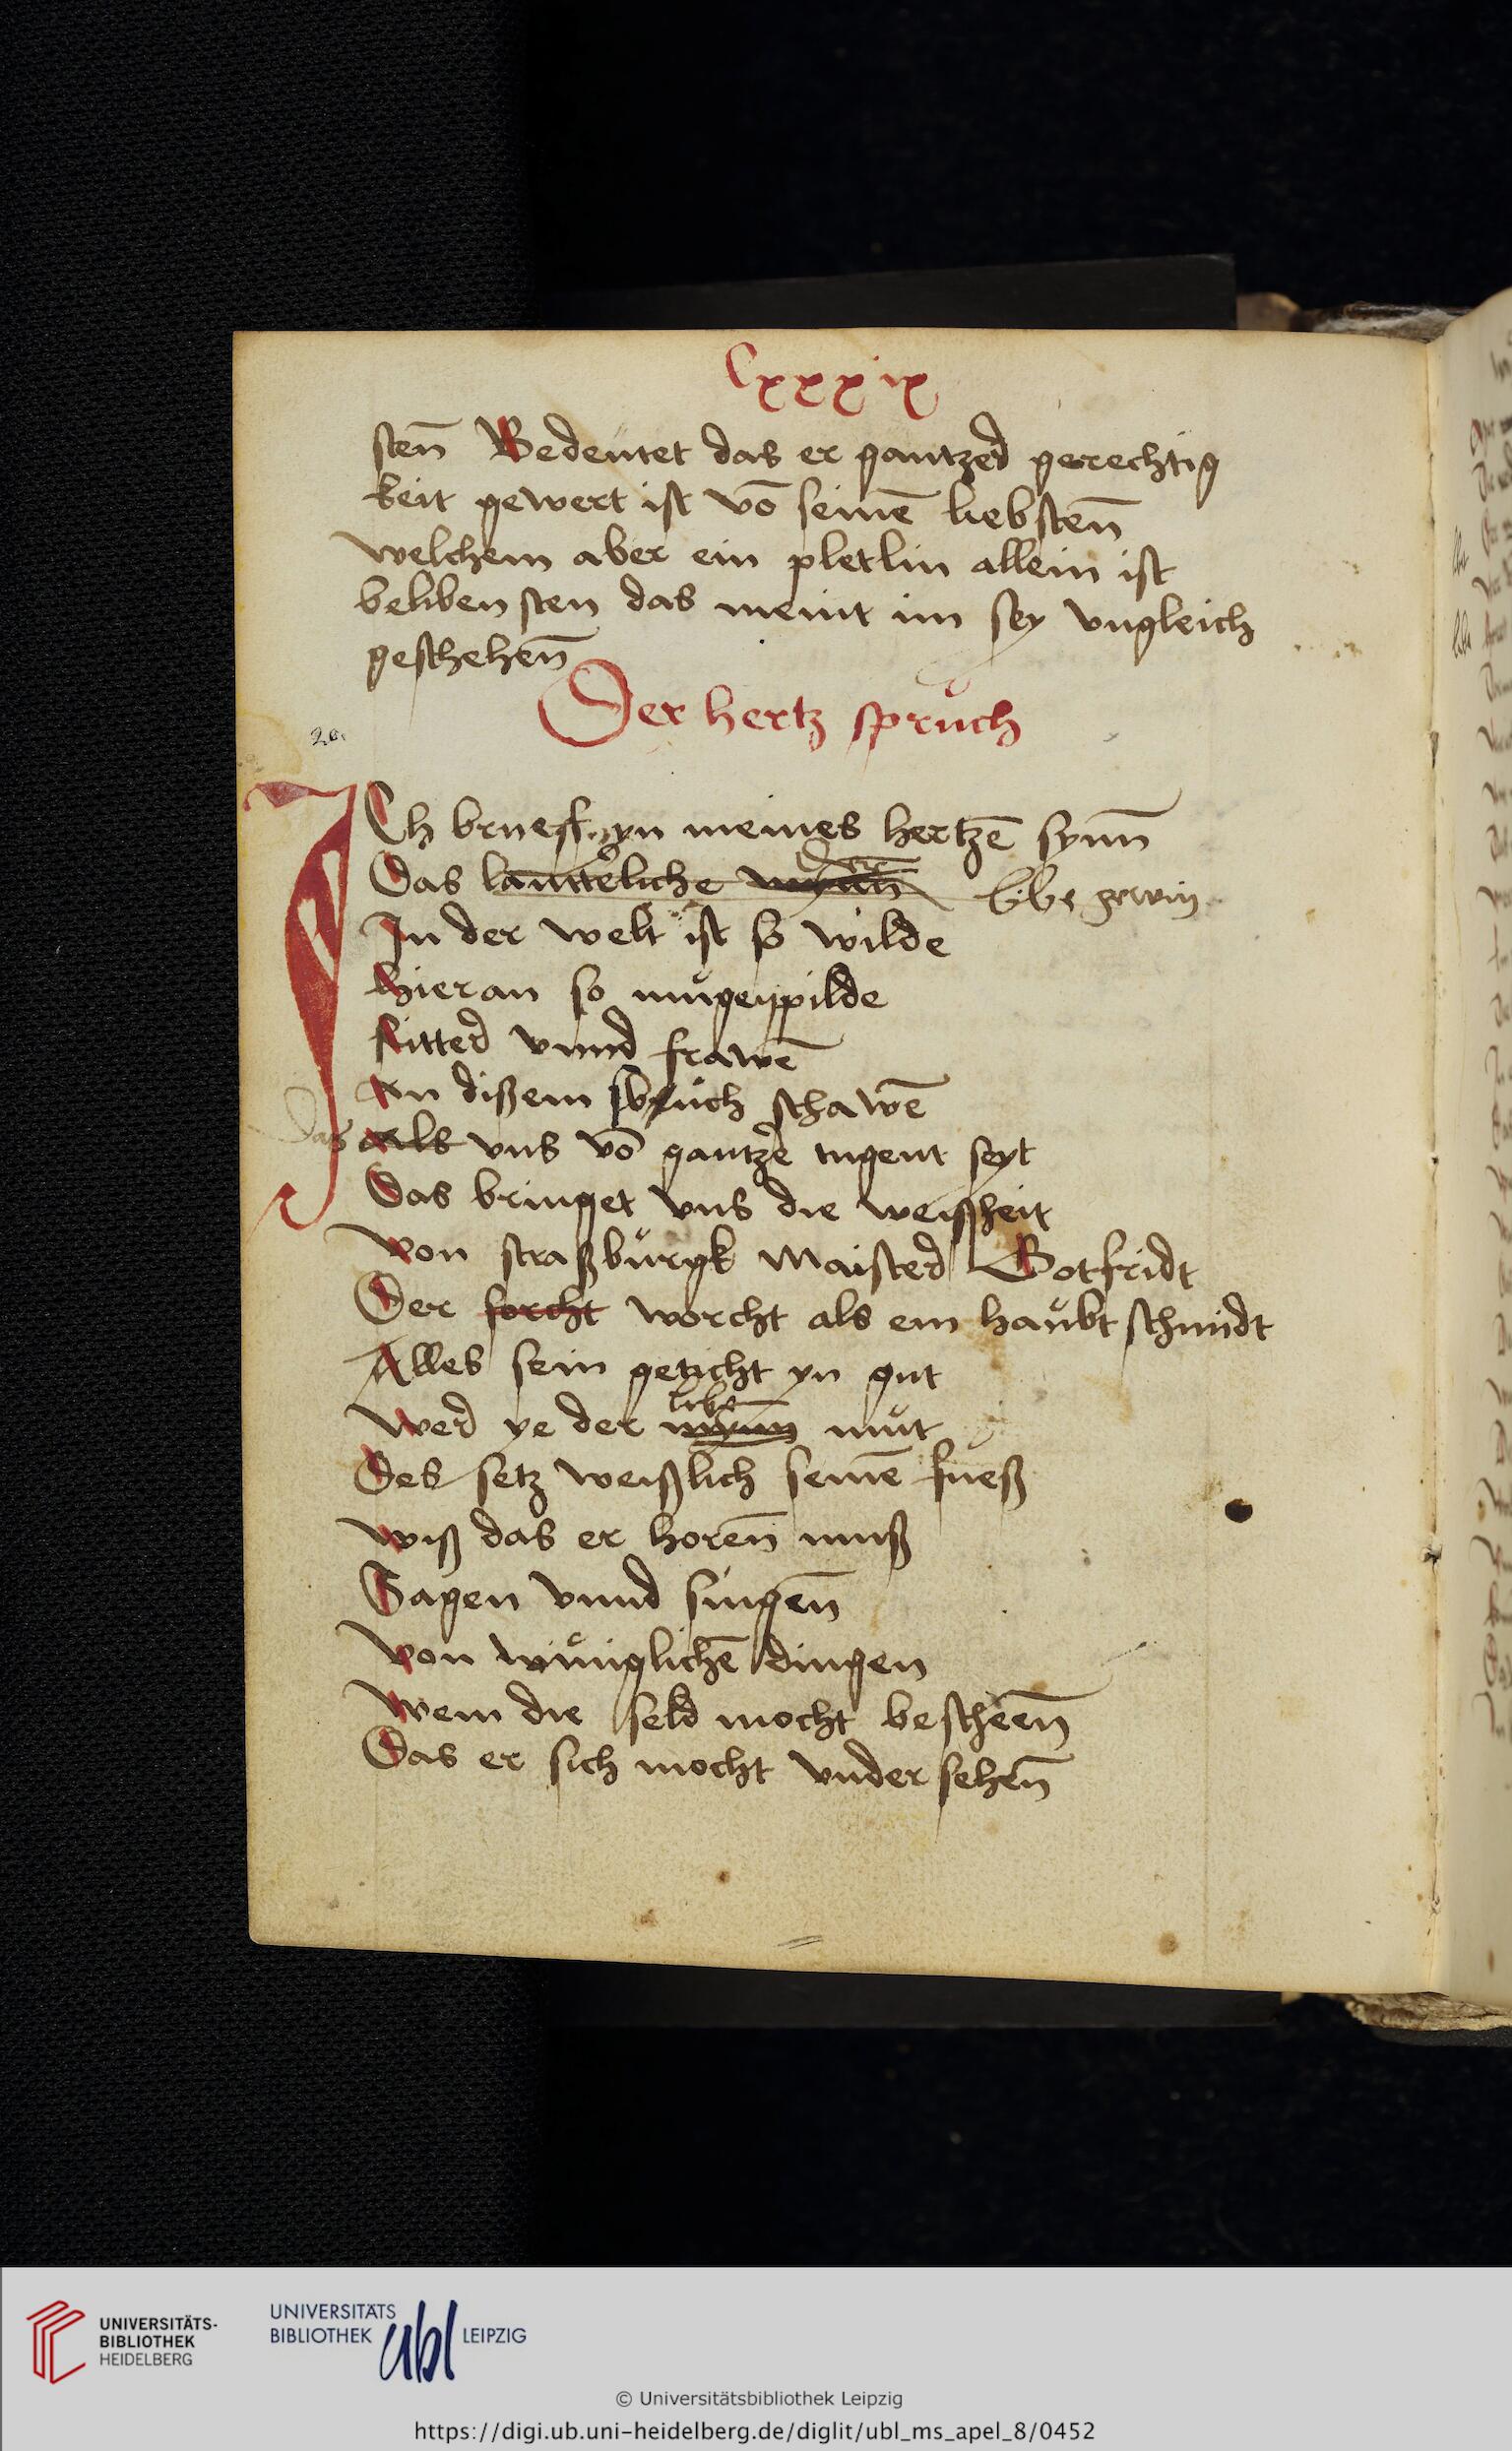 Cxxxix
sten̄ Bedeütet das er gantzer gerechtig
keit gewert ist vō seinē liebsten̄
welchem aber ein pletlin allein ist
beliben sten das meint im sey vngleich
geschehen̄
Der hertz sprůch
20.
ICh brueff yn meines hertzē synn̄
Das lautteliche libe gewin
In der welt ist so wilde
hieran so můgen pilde
Ritter vnnd frawē
An dißem sbrůch schawē
das als vns vō gantzer tugent seyt
Das bringet vns die weißheit
Von straßbůrgk Maister Gotfridt
Der forcht worcht als ein haůbt schmidt
Alles sein geticht yn gut
libe
Wer ye der mynn můt
Des setz weißlich seinē fueß
wiß das er horen̄ muß
Sagen vnnd singen̄
Von wůniglichē dingen
Wem die seld mocht bescheen̄
Das er sich mocht vnder sehen̄
UNIVERSITÄTS-
BIBLIOTHEK
HEIDELBERG
UNIVERSITÄTS
BIBLIOTHEK ubl LEIPZIG
© Universitätsbibliothek Leipzig
https://digi.ub.uni-heidelberg.de/diglit/ubl_ms_apel_8/0452